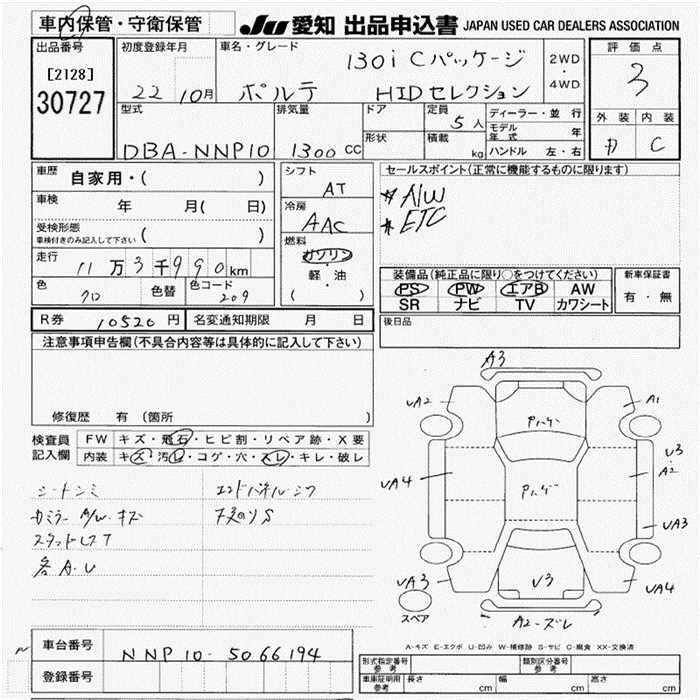 車内保管・守衛保管
JU 愛知 出品申込書 JAPAN USED CAR DEALERS ASSOCIATION
出品番号
[2128]
30727
初度登録年月
22 10月
車名・グレード
130i Cパッケージ
ポルテ HIDセレクション
2WD
・
4WD
評価点
3
外装 内装
C
型式
DBA-NNP10
排気量
1300 CC
ドア
形状
定員
5人
積載
kg
ディーラー・並行
モデル年式 年
ハンドル 左・右
車歴
自家用・( )
車検
年 月( 日)
受検形態
車検付きのみ記入して下さい ( )
走行
11万3千990km
色
クロ
色替
色コード
209
シフト
AT
冷房
AAC
燃料
ガソリン
軽・油
( )
セールスポイント(正常に機能するものに限ります)
A/W
ETC
装備品(純正品に限り○をつけてください)
PS PW エアB AW
SR ナビ TV カワシート
新車保証書
有・無
R券 10520円
名変通知期限 月 日
後日品
注意事項申告欄(不具合内容等は具体的に記入して下さい)
修復歴 有(箇所 )
検査員
記入欄
FW キズ・飛石・ヒビ割・リペア跡・X要
内装 キズ・汚レ・コゲ・穴・スレ・キレ・破レ
シートシミ
エンドパネル・シワ
カミラー A/W・キズ
スタッドレスT
各A・U
A3
UA2
A1
U3
A2
UA4
UA3
UA3
UA4
U3
A2-ズレ
スペア
A-キズ E-エクボ U-凹み W-補修跡 S-サビ C-腐食 XX-交換済
車台番号
NNP10-5066194
登録番号
形式指定番号
参考
類別区分番号
参考
車庫証明用
参考
長さ cm
幅 cm
高さ cm